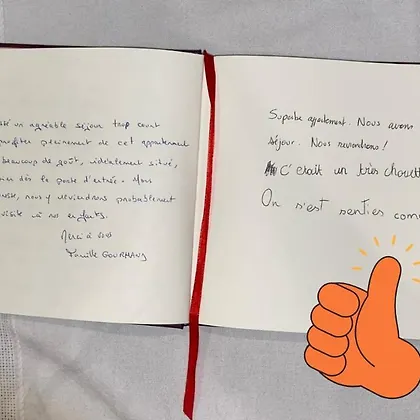 un agréable séjour trop court
profiter pleinement de cet appartement
beaucoup de goût, idéalement situé,
dès le porte d'entrée. Nous
nous y reviendrons probablement
visite à nos enfants.
Merci à vous
Famille GOURMAUD
Superbe appartement. Nous avons
séjour. Nous reviendrons!
C'était un très chouette
On s'est senties com